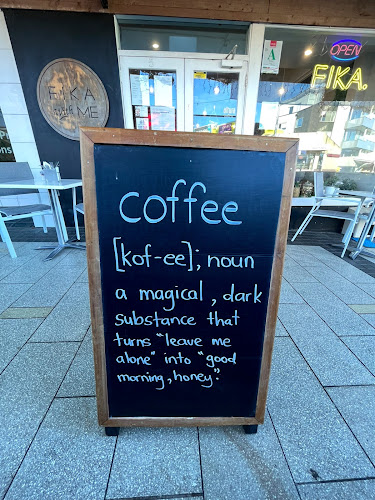 OPEN
FIKA.
FIKA
with ME
A
coffee
[kof-ee]; noun
a magical, dark
substance that
turns "leave me
alone" into "good
morning, honey".